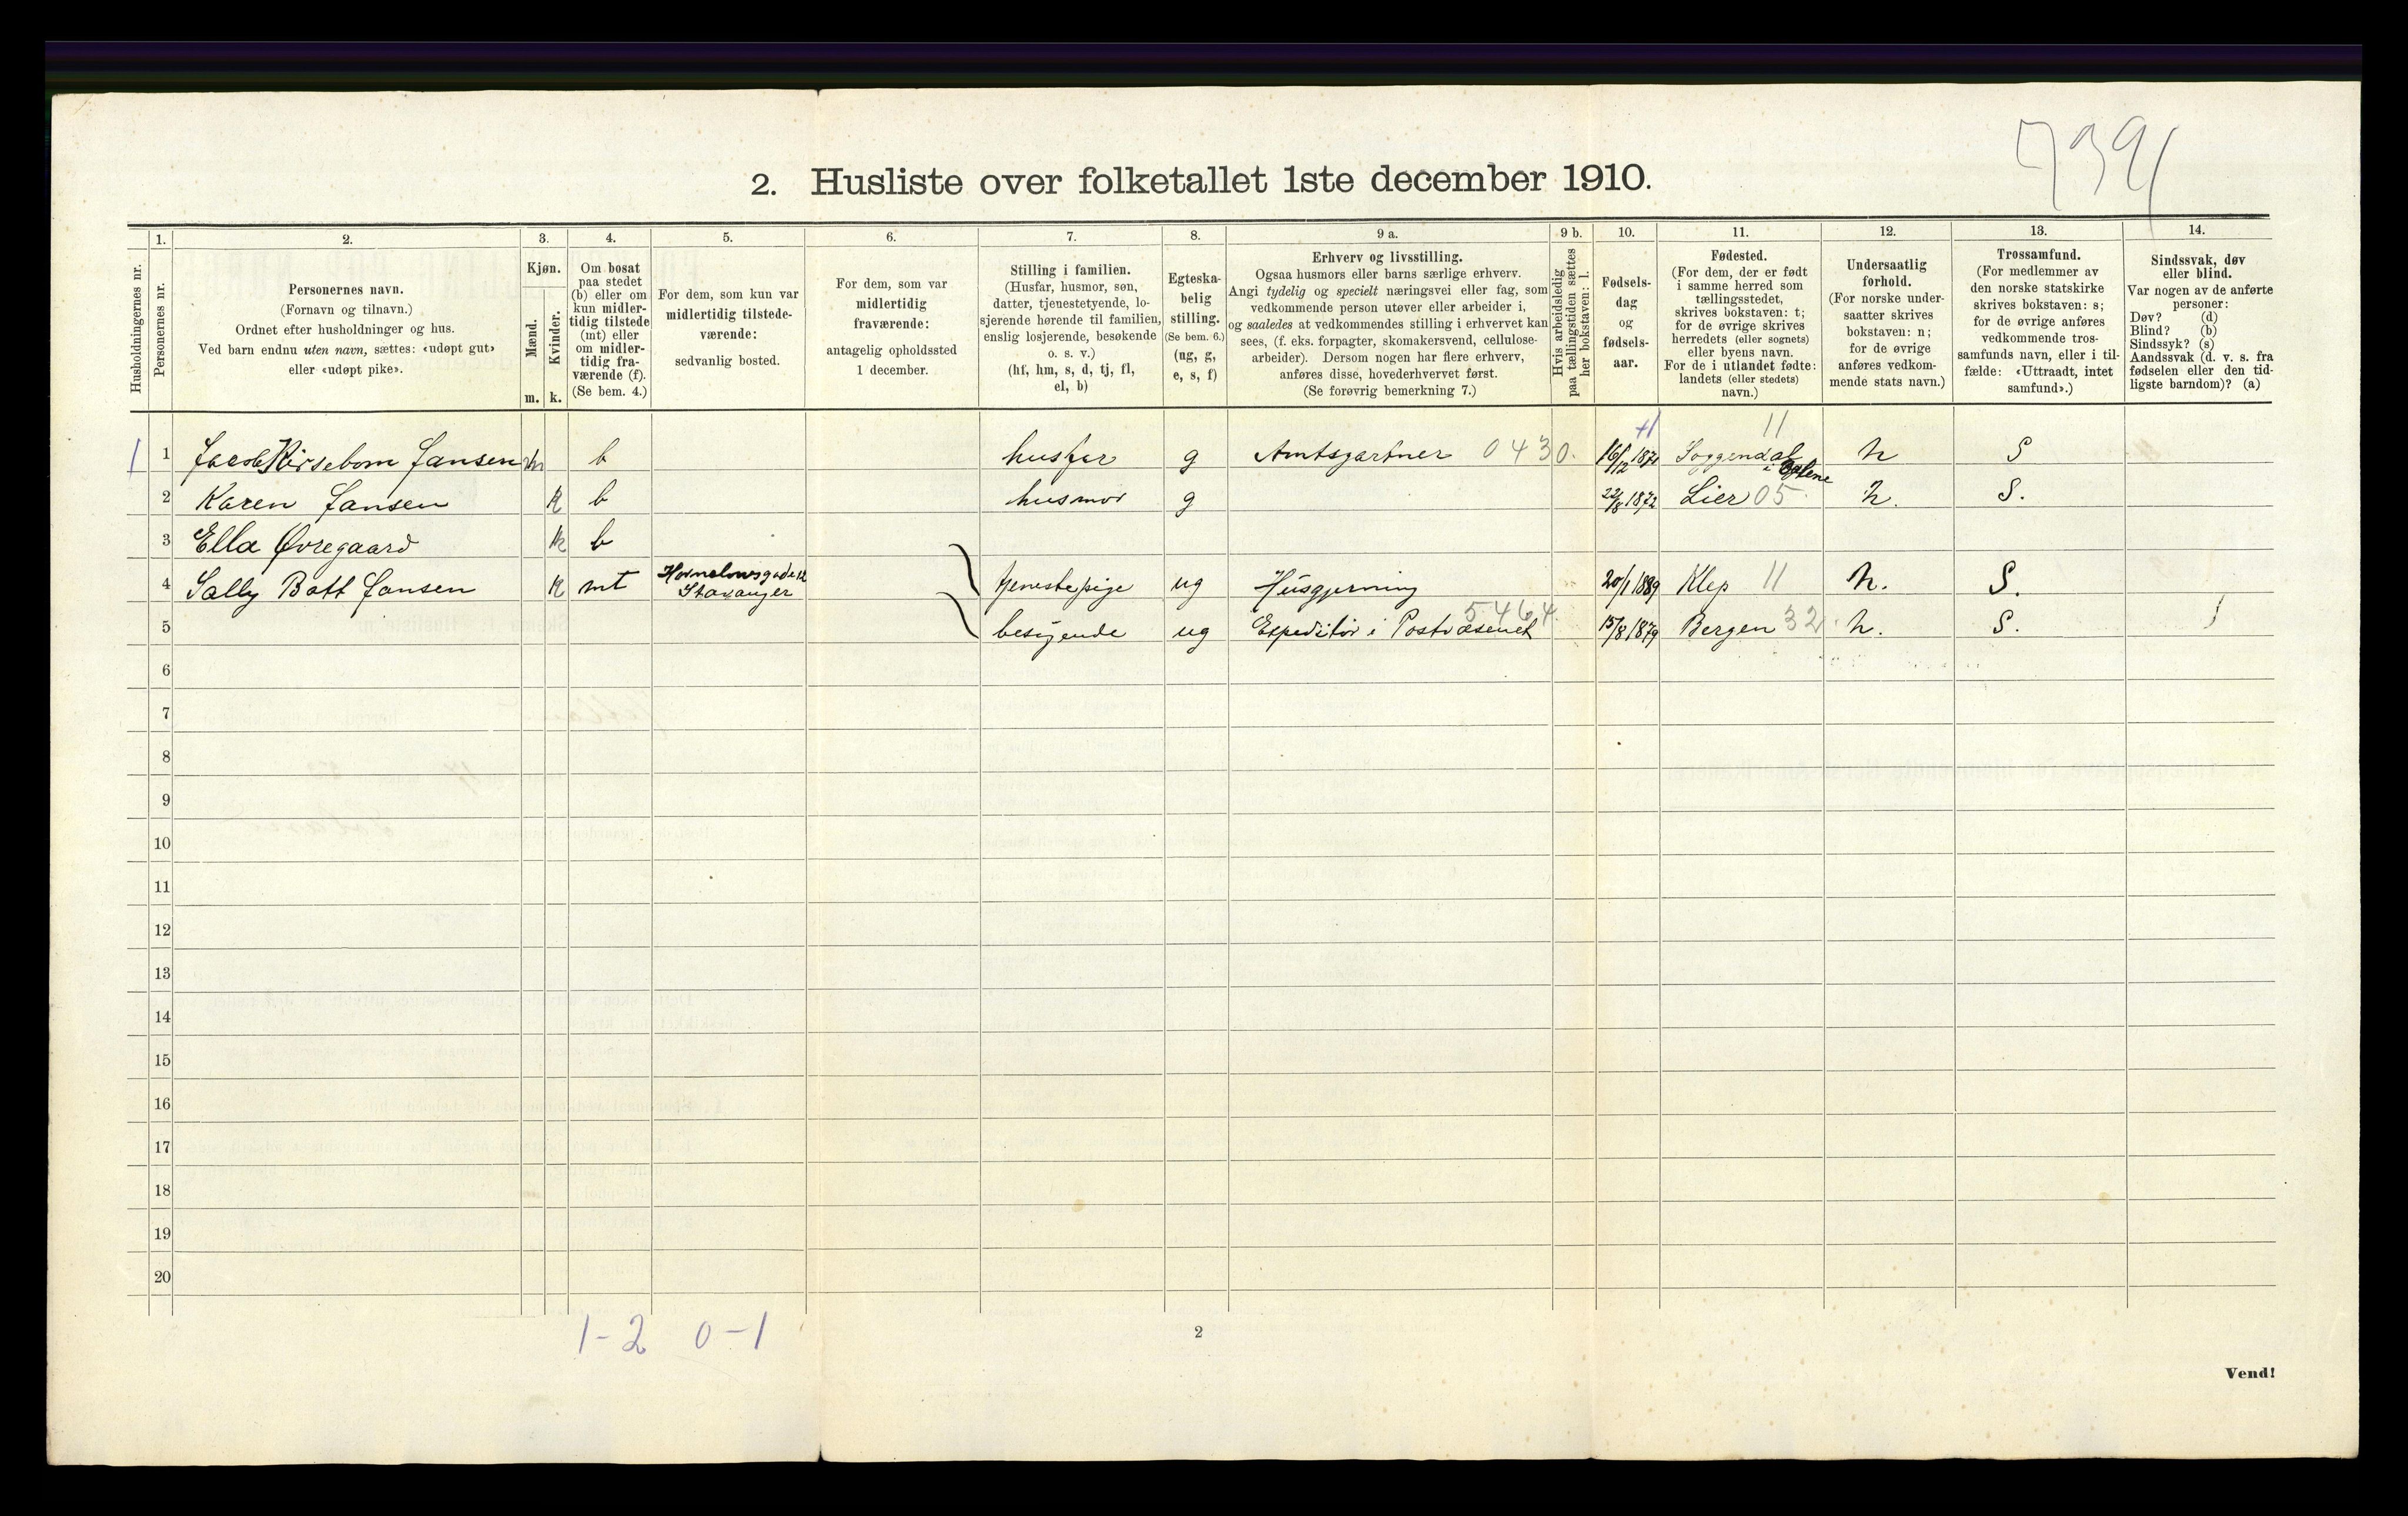 7391
2. Husliste over folketallet 1ste december 1910.
Husholdningernes nr.
1.
Personernes nr.
2.
Personernes navn.
(Fornavn og tilnavn.)
Ordnet efter husholdninger og hus.
Ved barn endnu uten navn, sættes: «udøpt gut»
eller «udøpt pike».
3.
Kjøn.
Mænd.
Kvinder.
m. k.
4.
Om bosat
paa stedet
(b) eller om
kun midler-
tidig tilstede
(mt) eller
om midler-
tidig fra-
værende (f).
(Se bem. 4.)
5.
For dem, som kun var
midlertidig tilstede-
værende:
sedvanlig bosted.
6.
For dem, som var
midlertidig
fraværende:
antagelig opholdssted
1 december.
7.
Stilling i familien.
(Husfar, husmor, søn,
datter, tjenestetyende, lo-
sjerende hørende til familien,
enslig losjerende, besøkende
o. s. v.)
(hf, hm, s, d, tj, fl,
el, b)
8.
Egteska-
belig
stilling.
(Se bem. 6.)
(ug, g,
e, s, f)
9 a.
Erhverv og livsstilling.
Ogsaa husmors eller barns særlige erhverv.
Angi tydelig og specielt næringsvei eller fag, som
vedkommende person utøver eller arbeider i,
og saaledes at vedkommendes stilling i erhvervet kan
sees, (f. eks. forpagter, skomakersvend, cellulose-
arbeider). Dersom nogen har flere erhverv,
anføres disse, hovederhvervet først.
(Se forøvrig bemerkning 7.)
9 b.
Hvis arbeidsledig
paa tællingstiden sættes
her bokstaven: l.
10.
Fødsels-
dag
og
fødsels-
aar.
11.
Fødested.
(For dem, der er født
i samme herred som
tællingsstedet,
skrives bokstaven: t;
for de øvrige skrives
herredets (eller sognets)
eller byens navn.
For de i utlandet fødte:
landets (eller stedets)
navn.)
12.
Undersaatlig
forhold.
(For norske under-
saatter skrives
bokstaven: n;
for de øvrige
anføres vedkom-
mende stats navn.)
13.
Trossamfund.
(For medlemmer av
den norske statskirke
skrives bokstaven: s;
for de øvrige anføres
vedkommende tros-
samfunds navn, eller i til-
fælde: «Uttraadt, intet
samfund».)
14.
Sindssvak, døv
eller blind.
Var nogen av de anførte
personer:
Døv? (d)
Blind? (b)
Sindssyk? (s)
Aandssvak (d. v. s. fra
fødselen eller den tid-
ligste barndom)? (a)
1 1 Jacob Kirsebom Jansen m b husfar g Amtsgartner 0430. 16/12 1871 Soggendal 11 n S
i Dalene
2 Karen Jansen k b husmor g 22/8 1872 Lier 05 n. S.
3 Ella Øvregaard k b
4 Sally Bott Jansen k mt Stavanger tjenestepige ug Husgjerning 20/1 1889 Klep 11 n. S.
5 besøgende ug Expeditør i Postvæsenet 5464 15/8 1879 Bergen 32 n. S.
6
7
8
9
10
11
12
13
14
15
16
17
18
19
20
1-2 0-1
2
Vend!